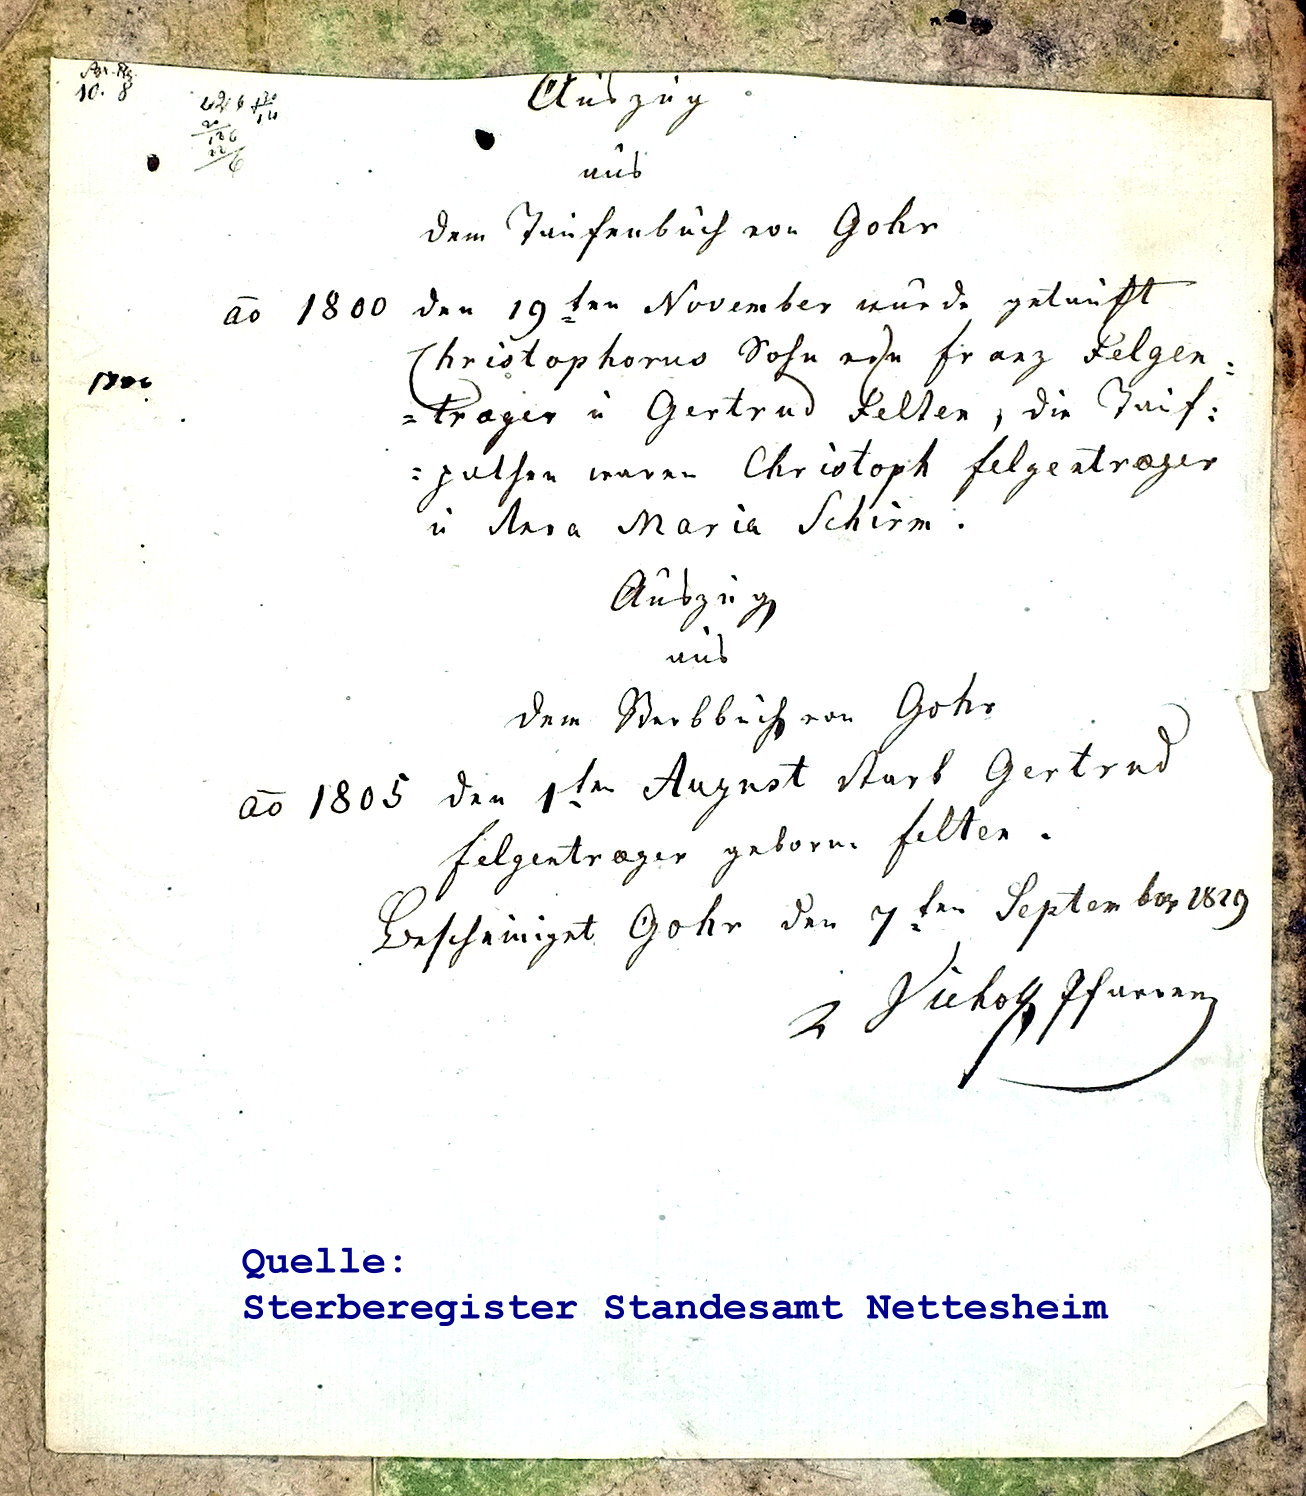 10. 8
Auszug
aus
dem Taufenbuch von Gohr
ao 1800 den 19ten November wurde getauft
Christophorus Sohn von Franz Felgen=
=traeger u Gertrud Felten, die Tauf=
=pathen waren Christoph Felgentraeger
u Anna Maria Schirm.
Auszug
aus
dem Sterbbuch von Gohr
ao 1805 den 1ten August starb Gertrud
Felgentraeger geborne Felten.
Bescheiniget Gohr den 7ten September 1829
Pfarrer
Quelle:
Sterberegister Standesamt Nettesheim